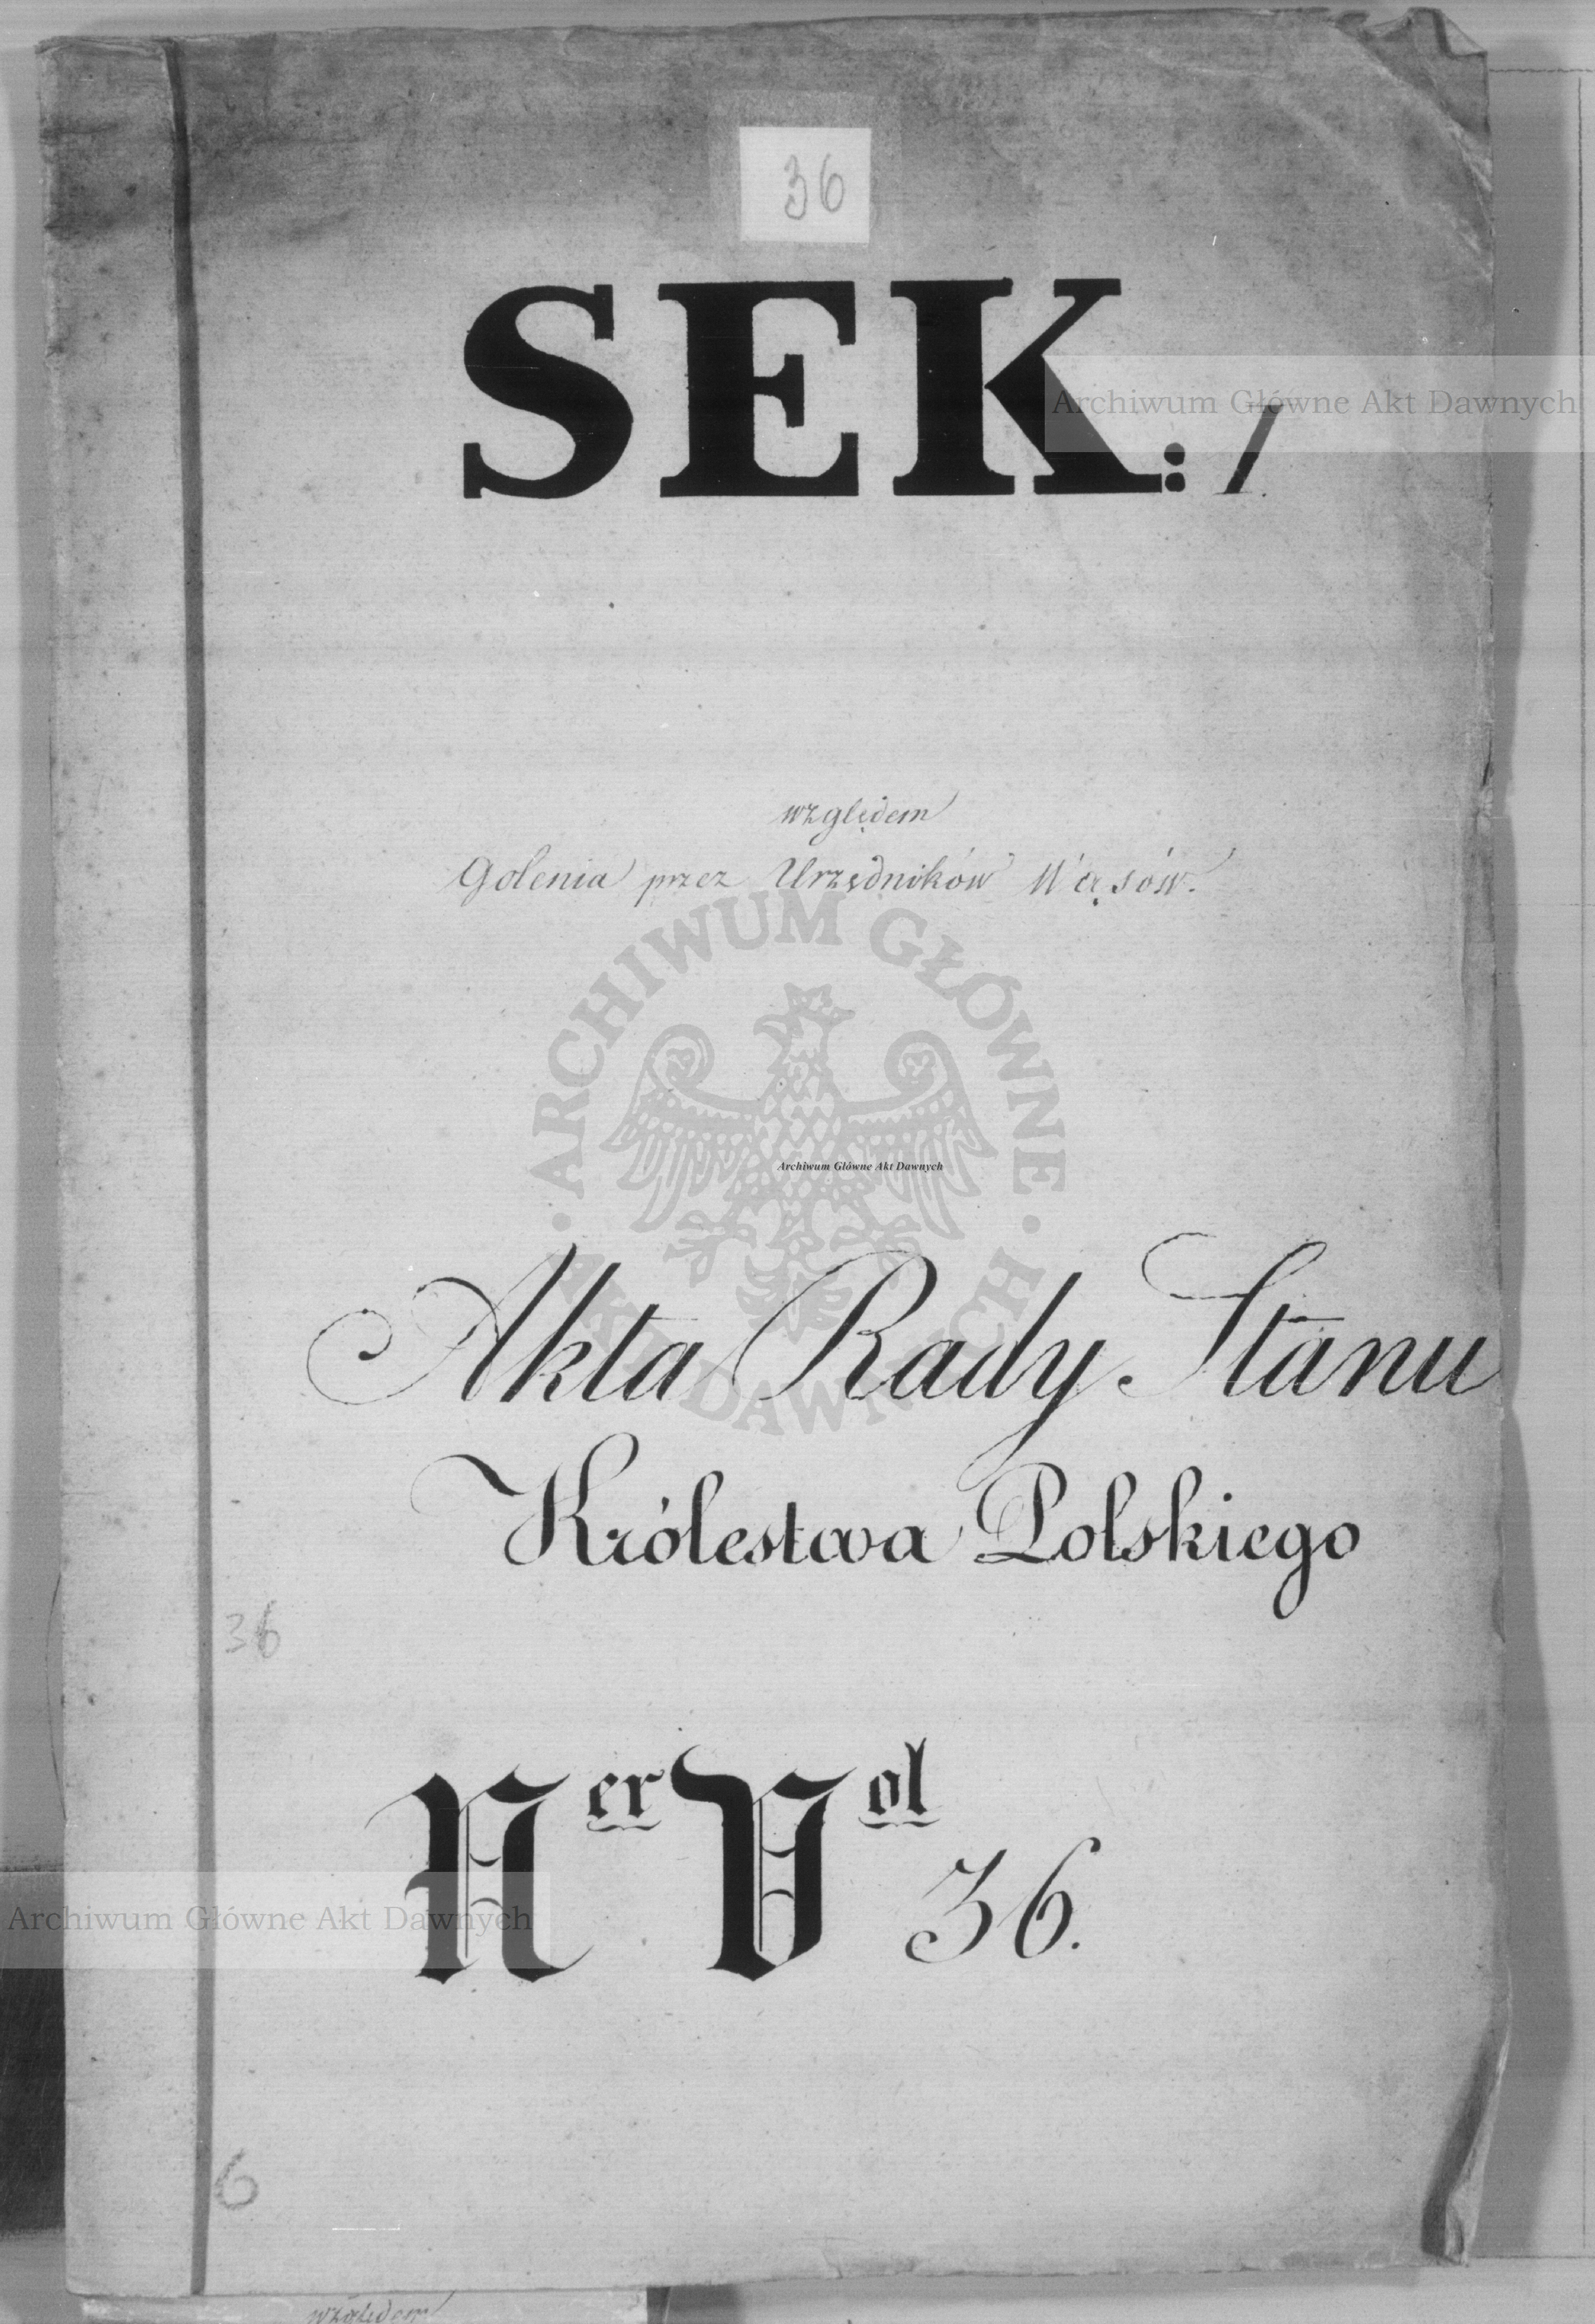 36
SEK: 1.
Archiwum Główne Akt Dawnych
względem
Golenia przez Urzędników Wąsów.
ARCHIWUM GŁÓWNE AKT DAWNYCH
Archiwum Główne Akt Dawnych
Akta Rady Stanu
Królestwa Polskiego
36
Ner Vol 36.
Archiwum Główne Akt Dawnych
6
względem